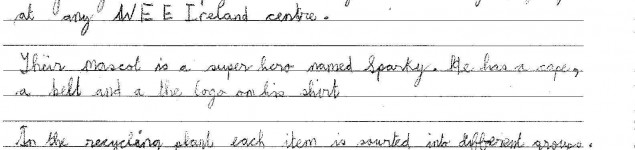 at any WEE Ireland centre.
Their mascot is a super hero named Sparky. He has a cape,
a belt and a the logo on his shirt
In the recycling plant each item is sourted into different groups.